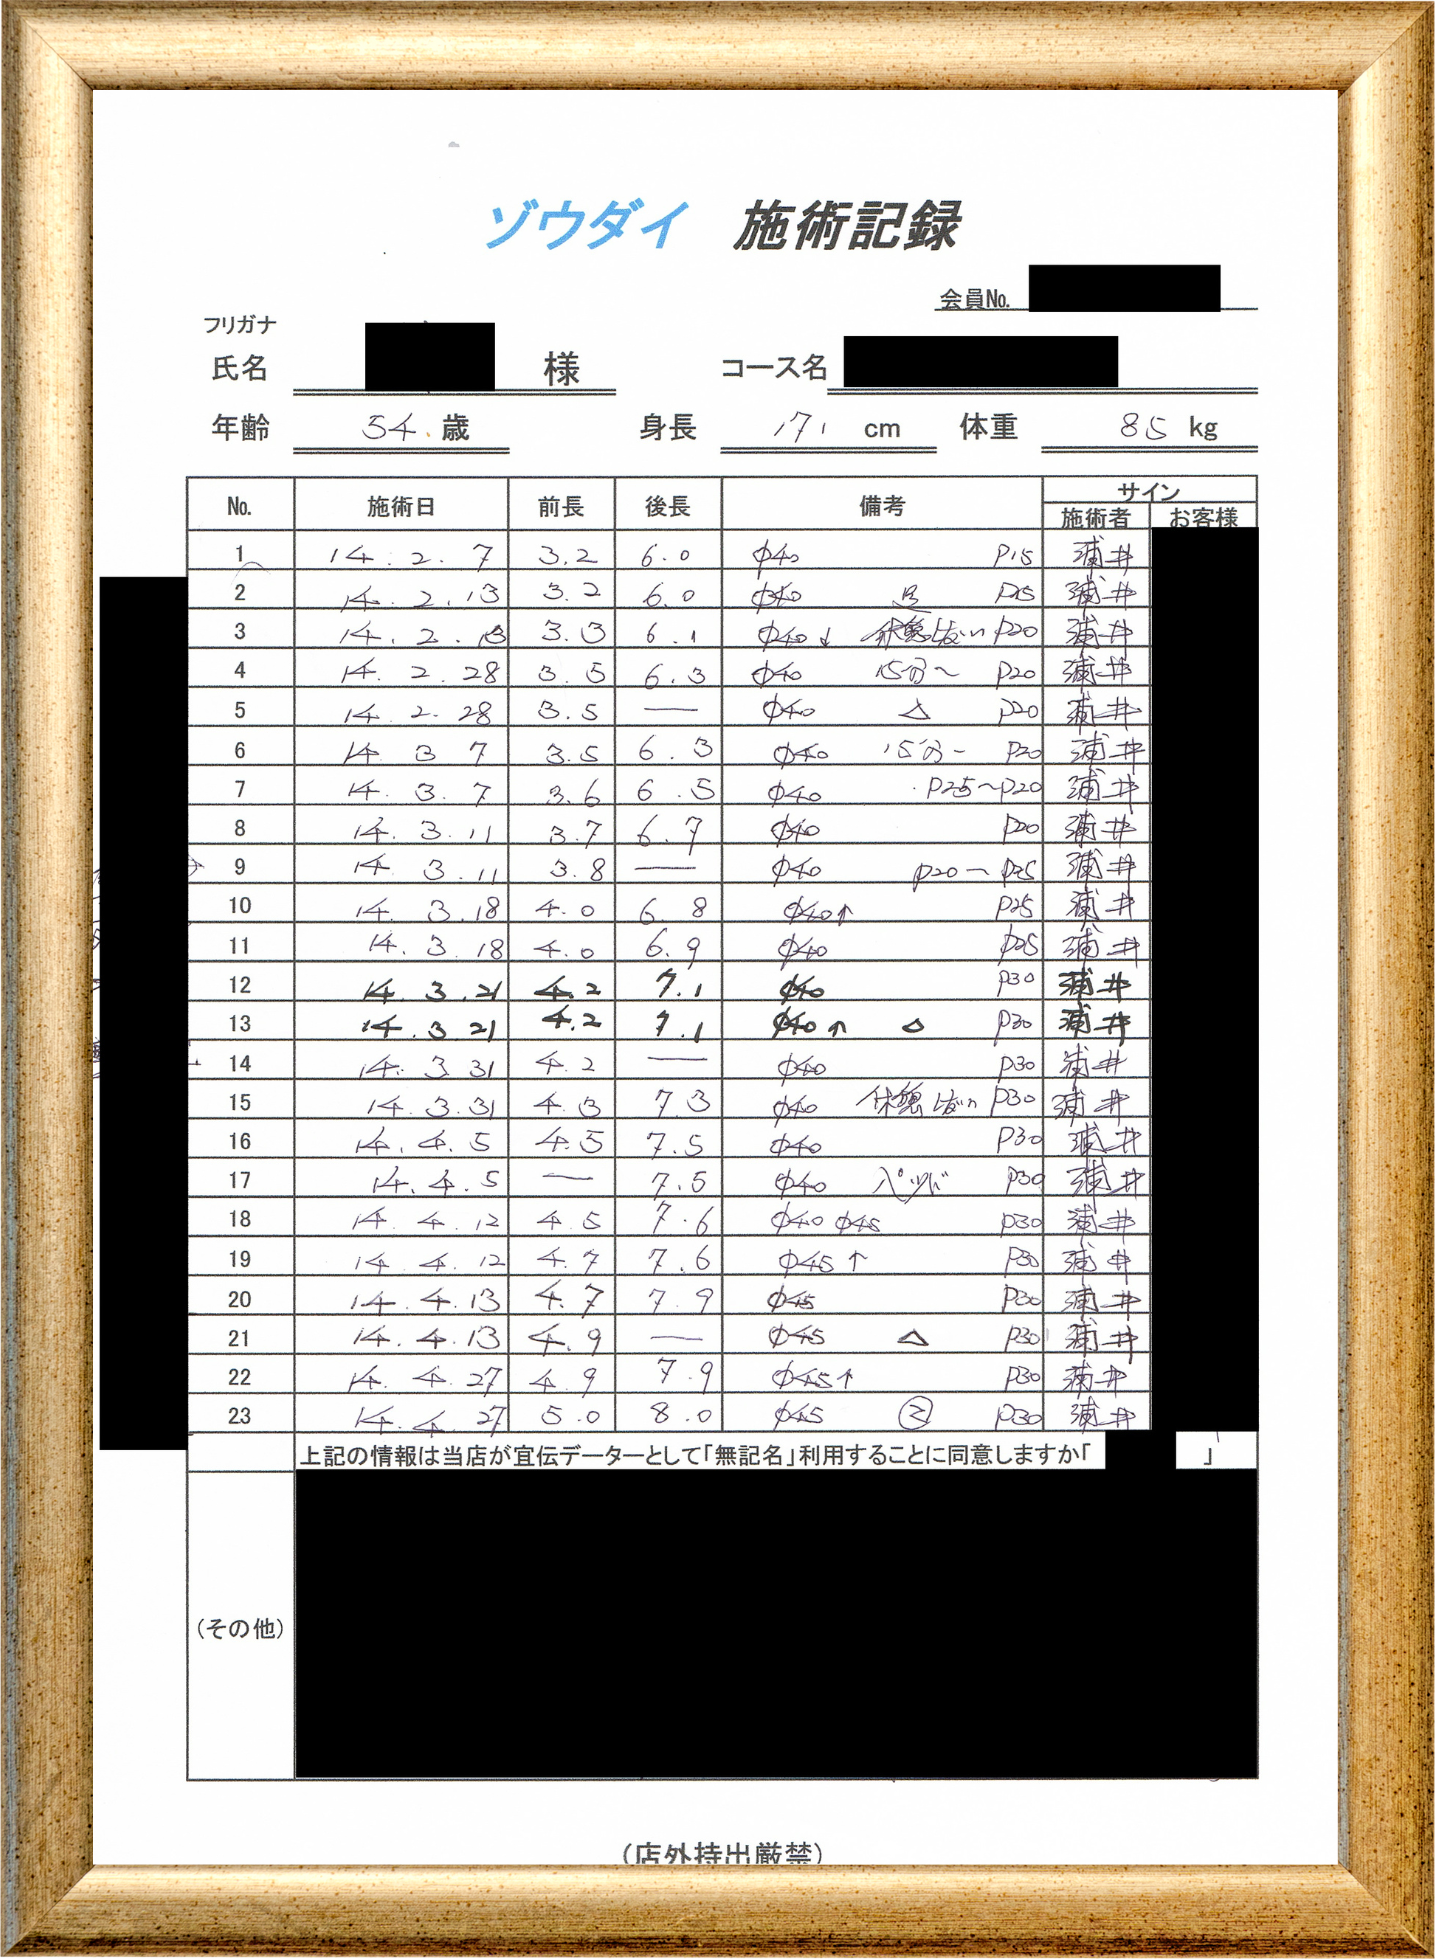 ゾウダイ 施術記録
会員No.
フリガナ
氏名 様 コース名
年齢 54 歳 身長 171 cm 体重 85 kg
No. 施術日 前長 後長 備考 サイン
施術者 お客様
1 14.2.7 3.2 6.0 φ40 P15 浦井
2 14.2.13 3.2 6.0 φ40 P15 浦井
3 14.2.13 3.3 6.1 φ40↓ 休憩 P20 浦井
4 14.2.28 3.5 6.3 φ40 15分〜 P20 浦井
5 14.2.28 3.5 — φ40 △ P20 浦井
6 14 3 7 3.5 6.3 φ40 15分〜 P20 浦井
7 14.3.7 3.6 6.5 φ40 P25〜P20 浦井
8 14.3.11 3.7 6.7 φ40 P20 浦井
9 14.3.11 3.8 — φ40 P20〜P25 浦井
10 14.3.18 4.0 6.8 φ40↑ P25 浦井
11 14.3.18 4.0 6.9 φ40 P25 浦井
12 14.3.21 4.2 7.1 φ40 P30 浦井
13 14.3.21 4.2 7.1 φ40↑ △ P30 浦井
14 14.3.31 4.2 — φ40 P30 浦井
15 14.3.31 4.3 7.3 φ40 休憩 P30 浦井
16 14.4.5 4.5 7.5 φ40 P30 浦井
17 14.4.5 — 7.5 φ40 P30 浦井
18 14.4.12 4.5 7.6 φ40 φ45 P30 浦井
19 14.4.12 4.7 7.6 φ45↑ P30 浦井
20 14.4.13 4.7 7.9 φ45 P30 浦井
21 14.4.13 4.9 — φ45 △ P30 浦井
22 14.4.27 4.9 7.9 φ45↑ P30 浦井
23 14.4.27 5.0 8.0 φ45 P30 浦井
上記の情報は当店が宣伝データーとして「無記名」利用することに同意しますか「 」
(その他)
(店外持出厳禁)